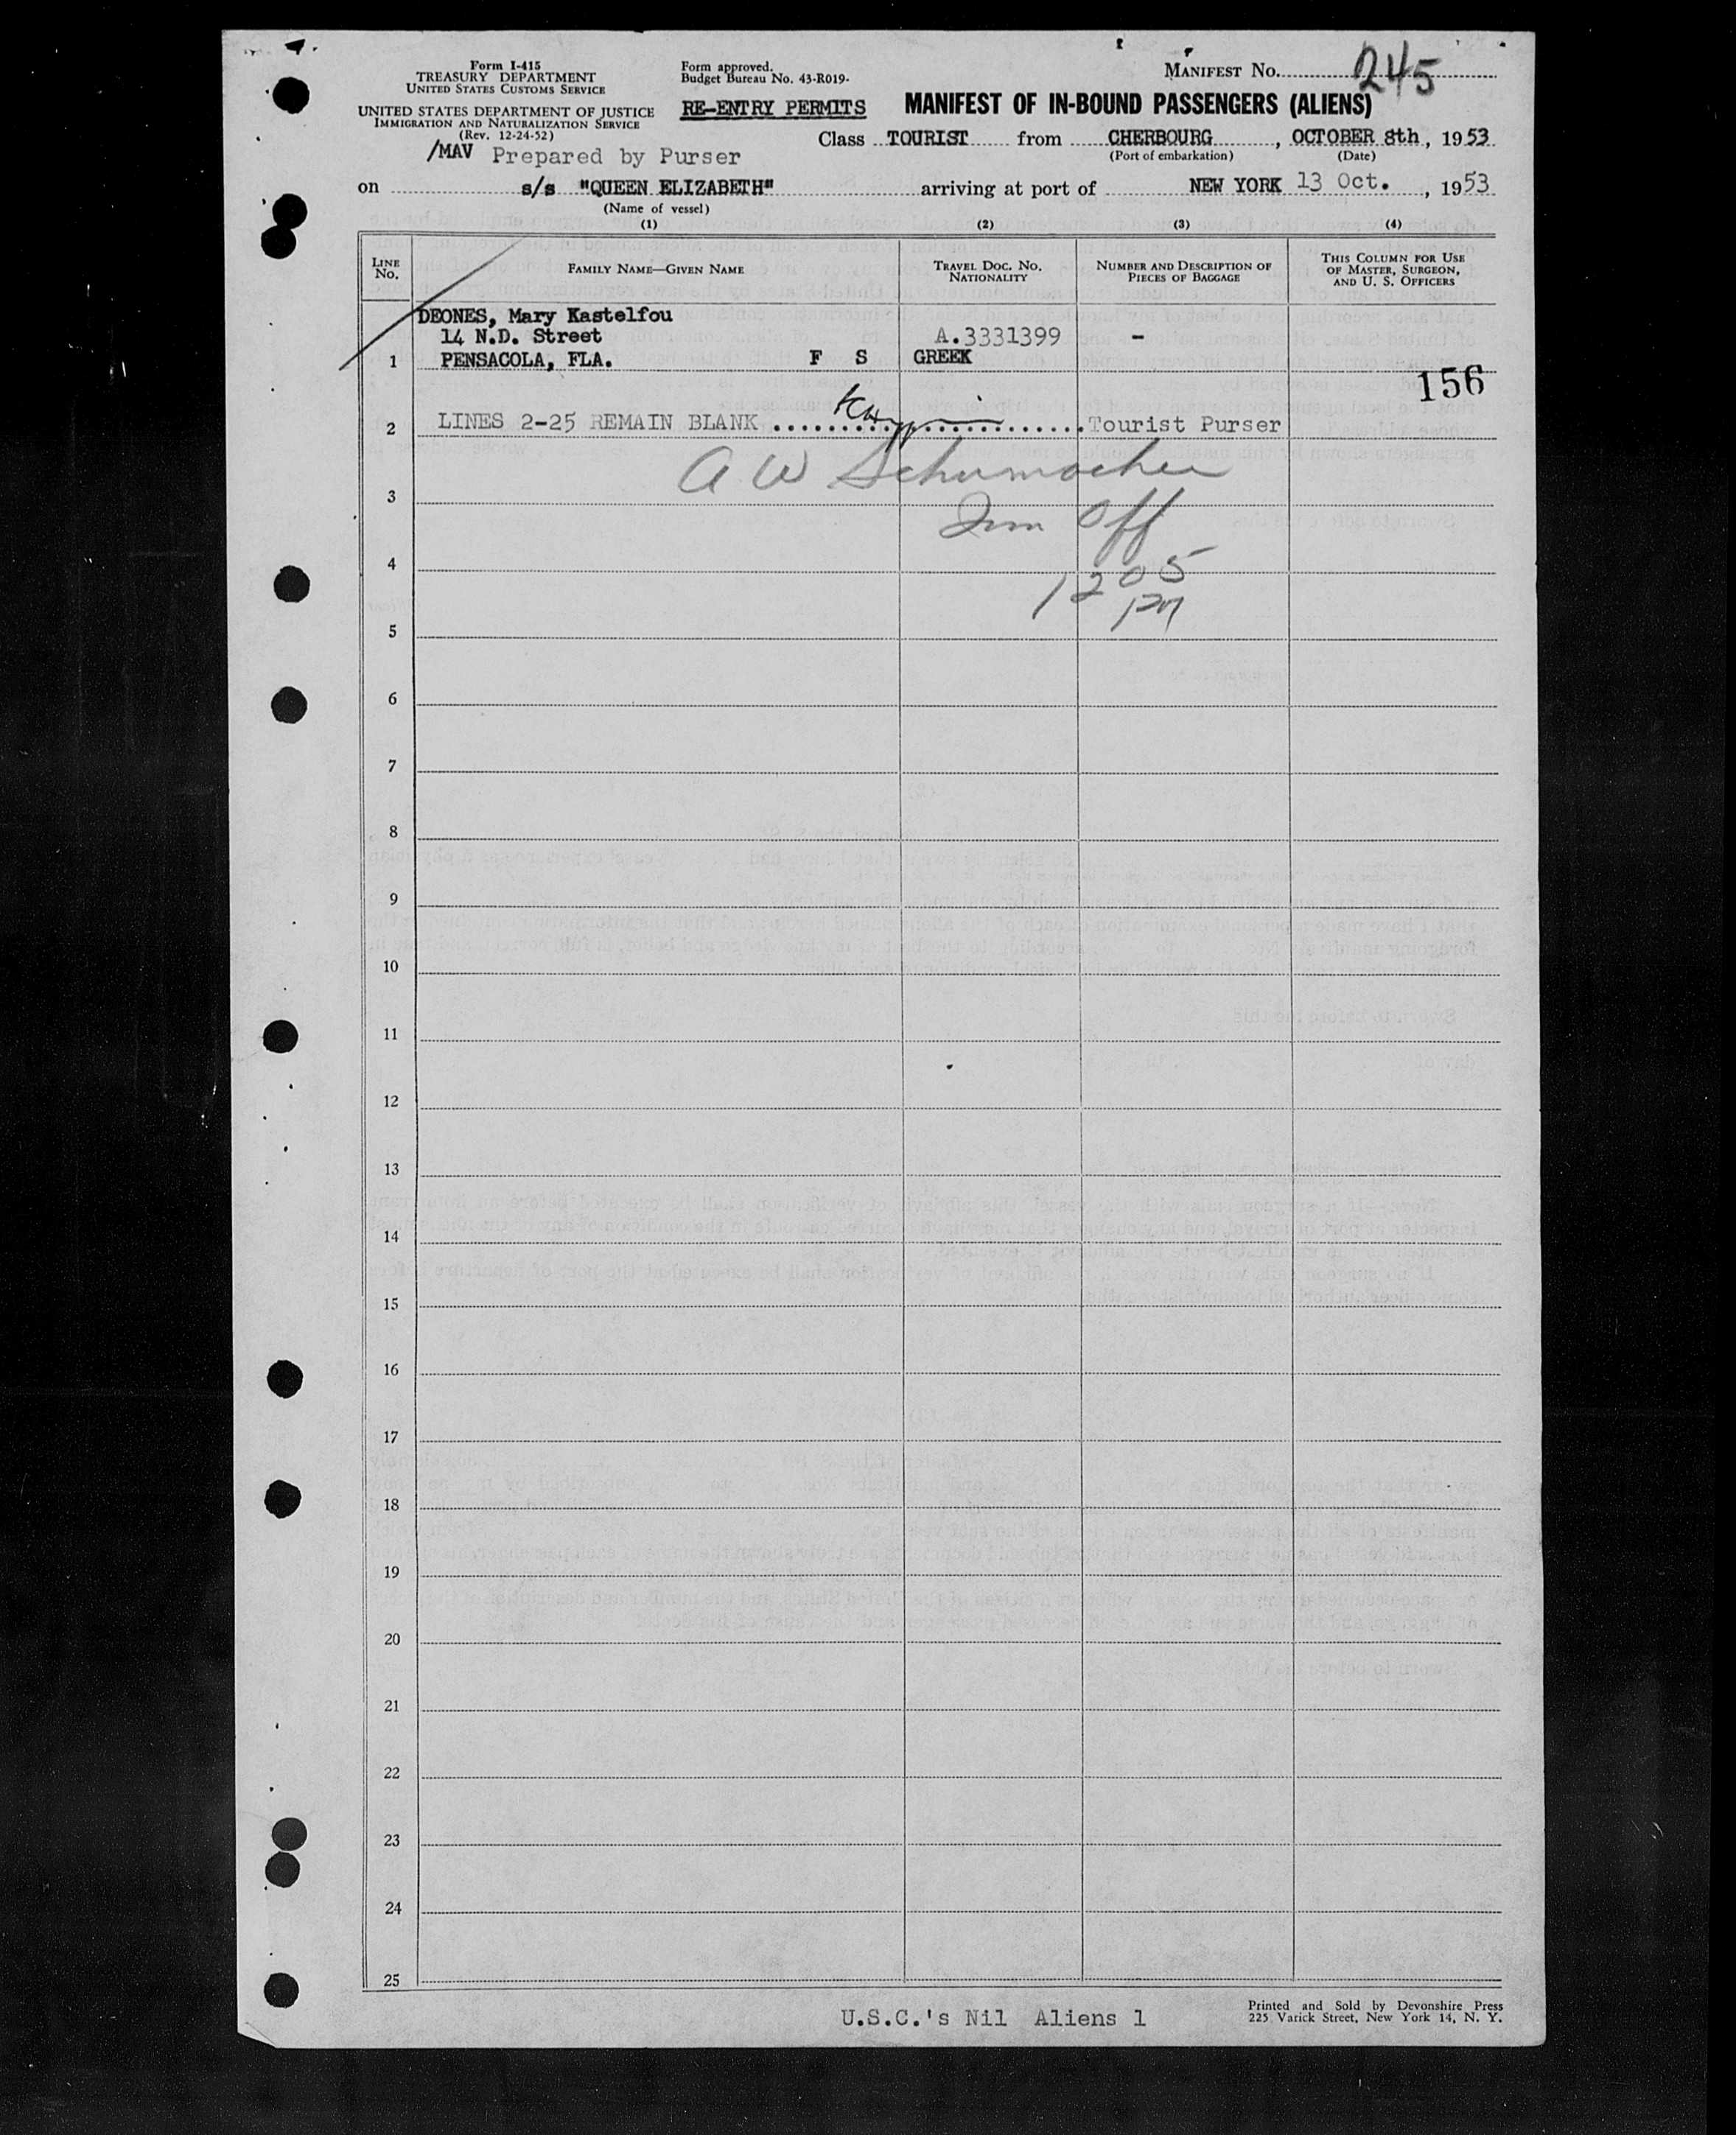 Form I-415
TREASURY DEPARTMENT
UNITED STATES CUSTOMS SERVICE
UNITED STATES DEPARTMENT OF JUSTICE
IMMIGRATION AND NATURALIZATION SERVICE
(Rev. 12-24-52)
Form approved.
Budget Bureau No. 43-R019-
RE-ENTRY PERMITS
MANIFEST NO. 245
MANIFEST OF IN-BOUND PASSENGERS (ALIENS)
Class TOURIST from CHERBOURG, OCTOBER 8th, 1953
(Port of embarkation) (Date)
/MAV Prepared by Purser
on s/s "QUEEN ELIZABETH" arriving at port of NEW YORK 13 Oct., 1953
(Name of vessel)
(1) (2) (3) (4)
LINE NO. FAMILY NAME—GIVEN NAME TRAVEL DOC. NO. NATIONALITY NUMBER AND DESCRIPTION OF PIECES OF BAGGAGE THIS COLUMN FOR USE OF MASTER, SURGEON, AND U. S. OFFICERS
DEONES, Mary Kastelfou
14 N.D. Street A.3331399 -
1 PENSACOLA, FLA. F S GREEK
156
2 LINES 2-25 REMAIN BLANK .......................Tourist Purser
A W Schumacher
3
Imm Off
4
1205
PM
5
6
7
8
9
10
11
12
13
14
15
16
17
18
19
20
21
22
23
24
25
U.S.C.'s Nil Aliens 1
Printed and Sold by Devonshire Press
225 Varick Street, New York 14, N. Y.